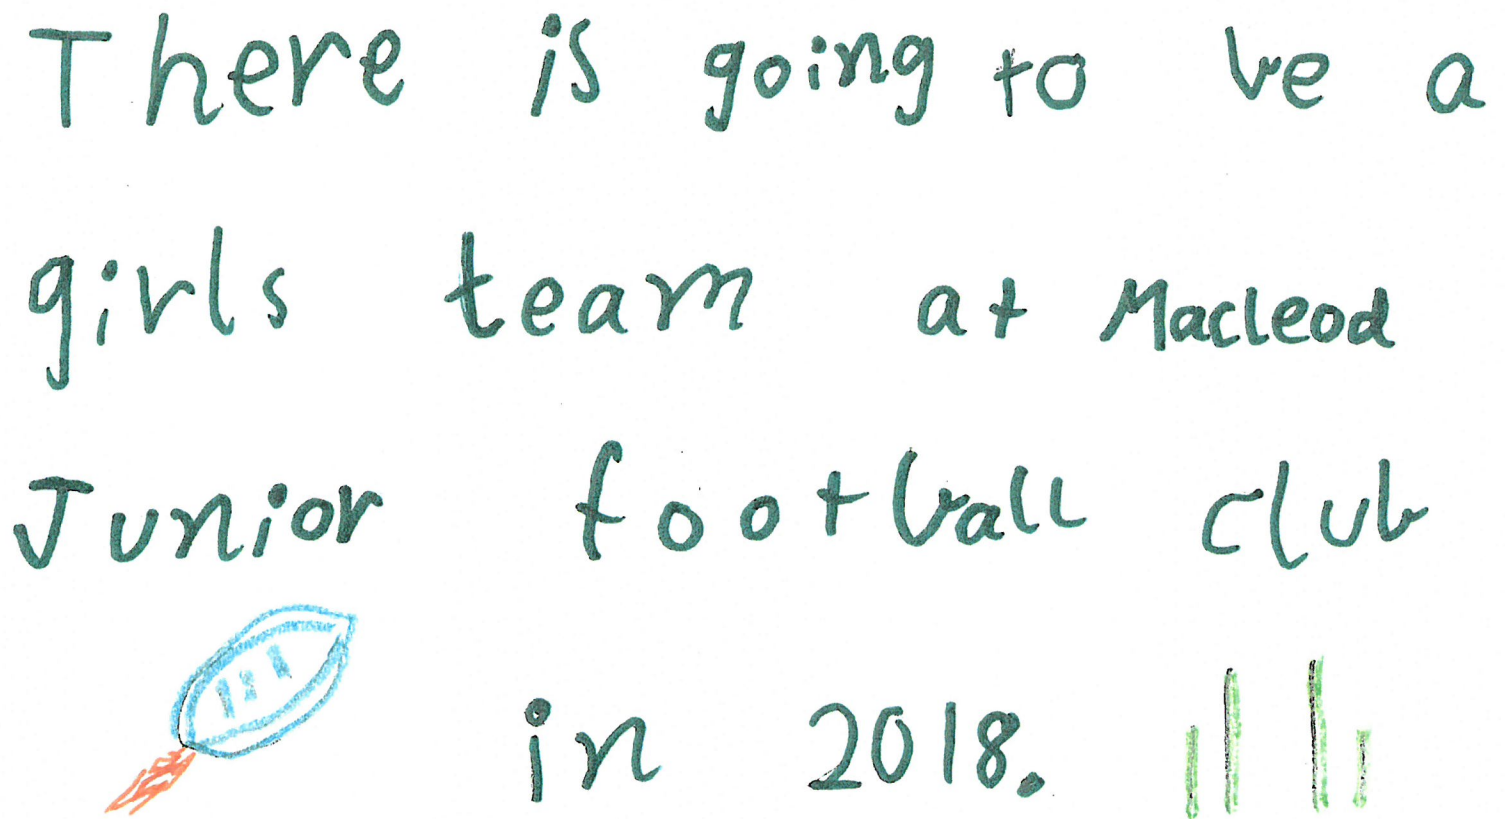 There is going to be a
girls team at Macleod
Junior football club
in 2018.